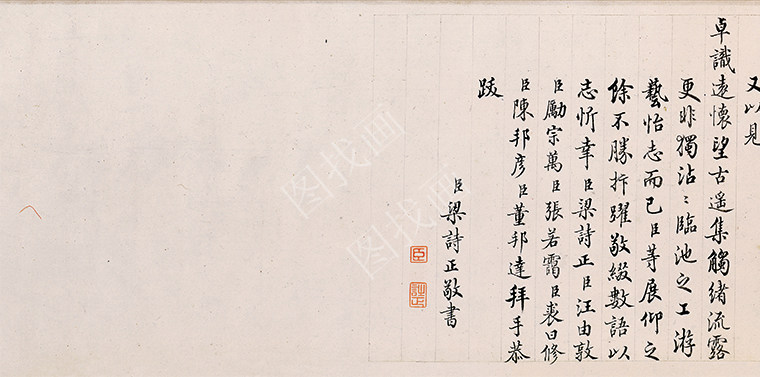 又以見
卓識遠懷望古遥集觸緒流露
更非獨沾沾臨池之工游
藝怡志而已臣等展仰之
餘不勝抃躍敬綴數語以
志忻幸臣梁詩正臣汪由敦
臣勵宗萬臣張若靄臣裘曰修
臣陳邦彦臣董邦達拜手恭
跋
臣梁詩正敬書
臣
詩正
图找画
图找画